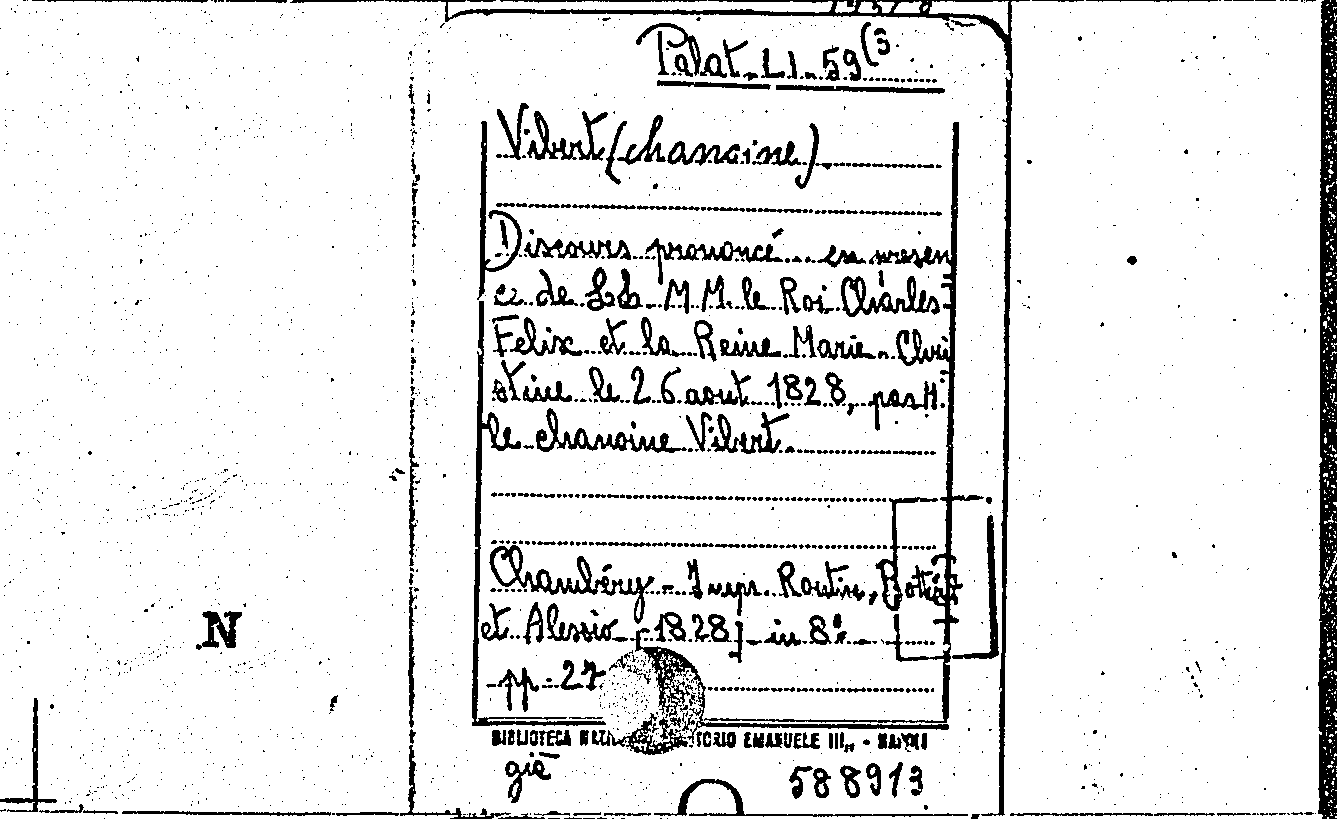 Palat. LI. 59(3
Vibert (chanoine)
Discours prononcé... en presen
ce de LL. MM. le Roi Charles-
Felix et la Reine Marie-Chri
stine le 26 aout 1828, par M.
le chanoine Vibert.
Chambéry - Imp. Routin, Bottero
et Alessio [1828] in 8°.
pp. 27
BIBLIOTECA EMANUELE III,, - NAPOLI
già 588913
N